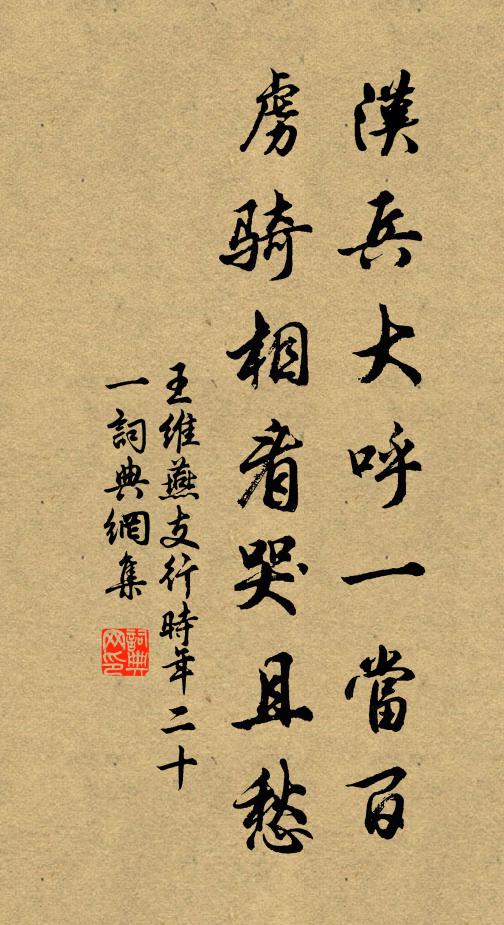 漢兵大呼一當百
虜騎相看哭且愁
王維燕支行時年二十
一詞典網集
詞典網印